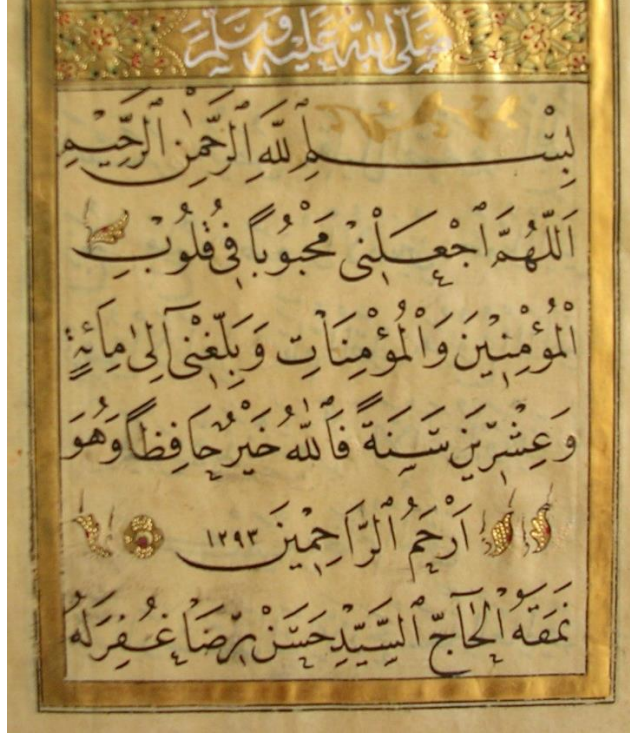 صَلَّى اللّٰهُ عَلَيْهِ وَسَلَّمَ
بِسْمِ اللهِ الرَّحْمٰنِ الرَّحِيْمِ
اَللّٰهُمَّ اجْعَلْنِىْ مَحْبُوبًا فِى قُلُوبِ
الْمُؤْمِنِيْنَ وَالْمُؤْمِنَاتِ وَبَلِّغْنِىْ اِلٰى مِائَةٍ
وَعِشْرِيْنَ سَنَةً فَاللّٰهُ خَيْرٌ حَافِظًا وَهُوَ
اَرْحَمُ الرَّاحِمِيْنَ ١٢٩٣
نَمَقَهُ الْحَآجّ السَّيِّد حَسَنْ رِضَا غُفِرَ لَهُ